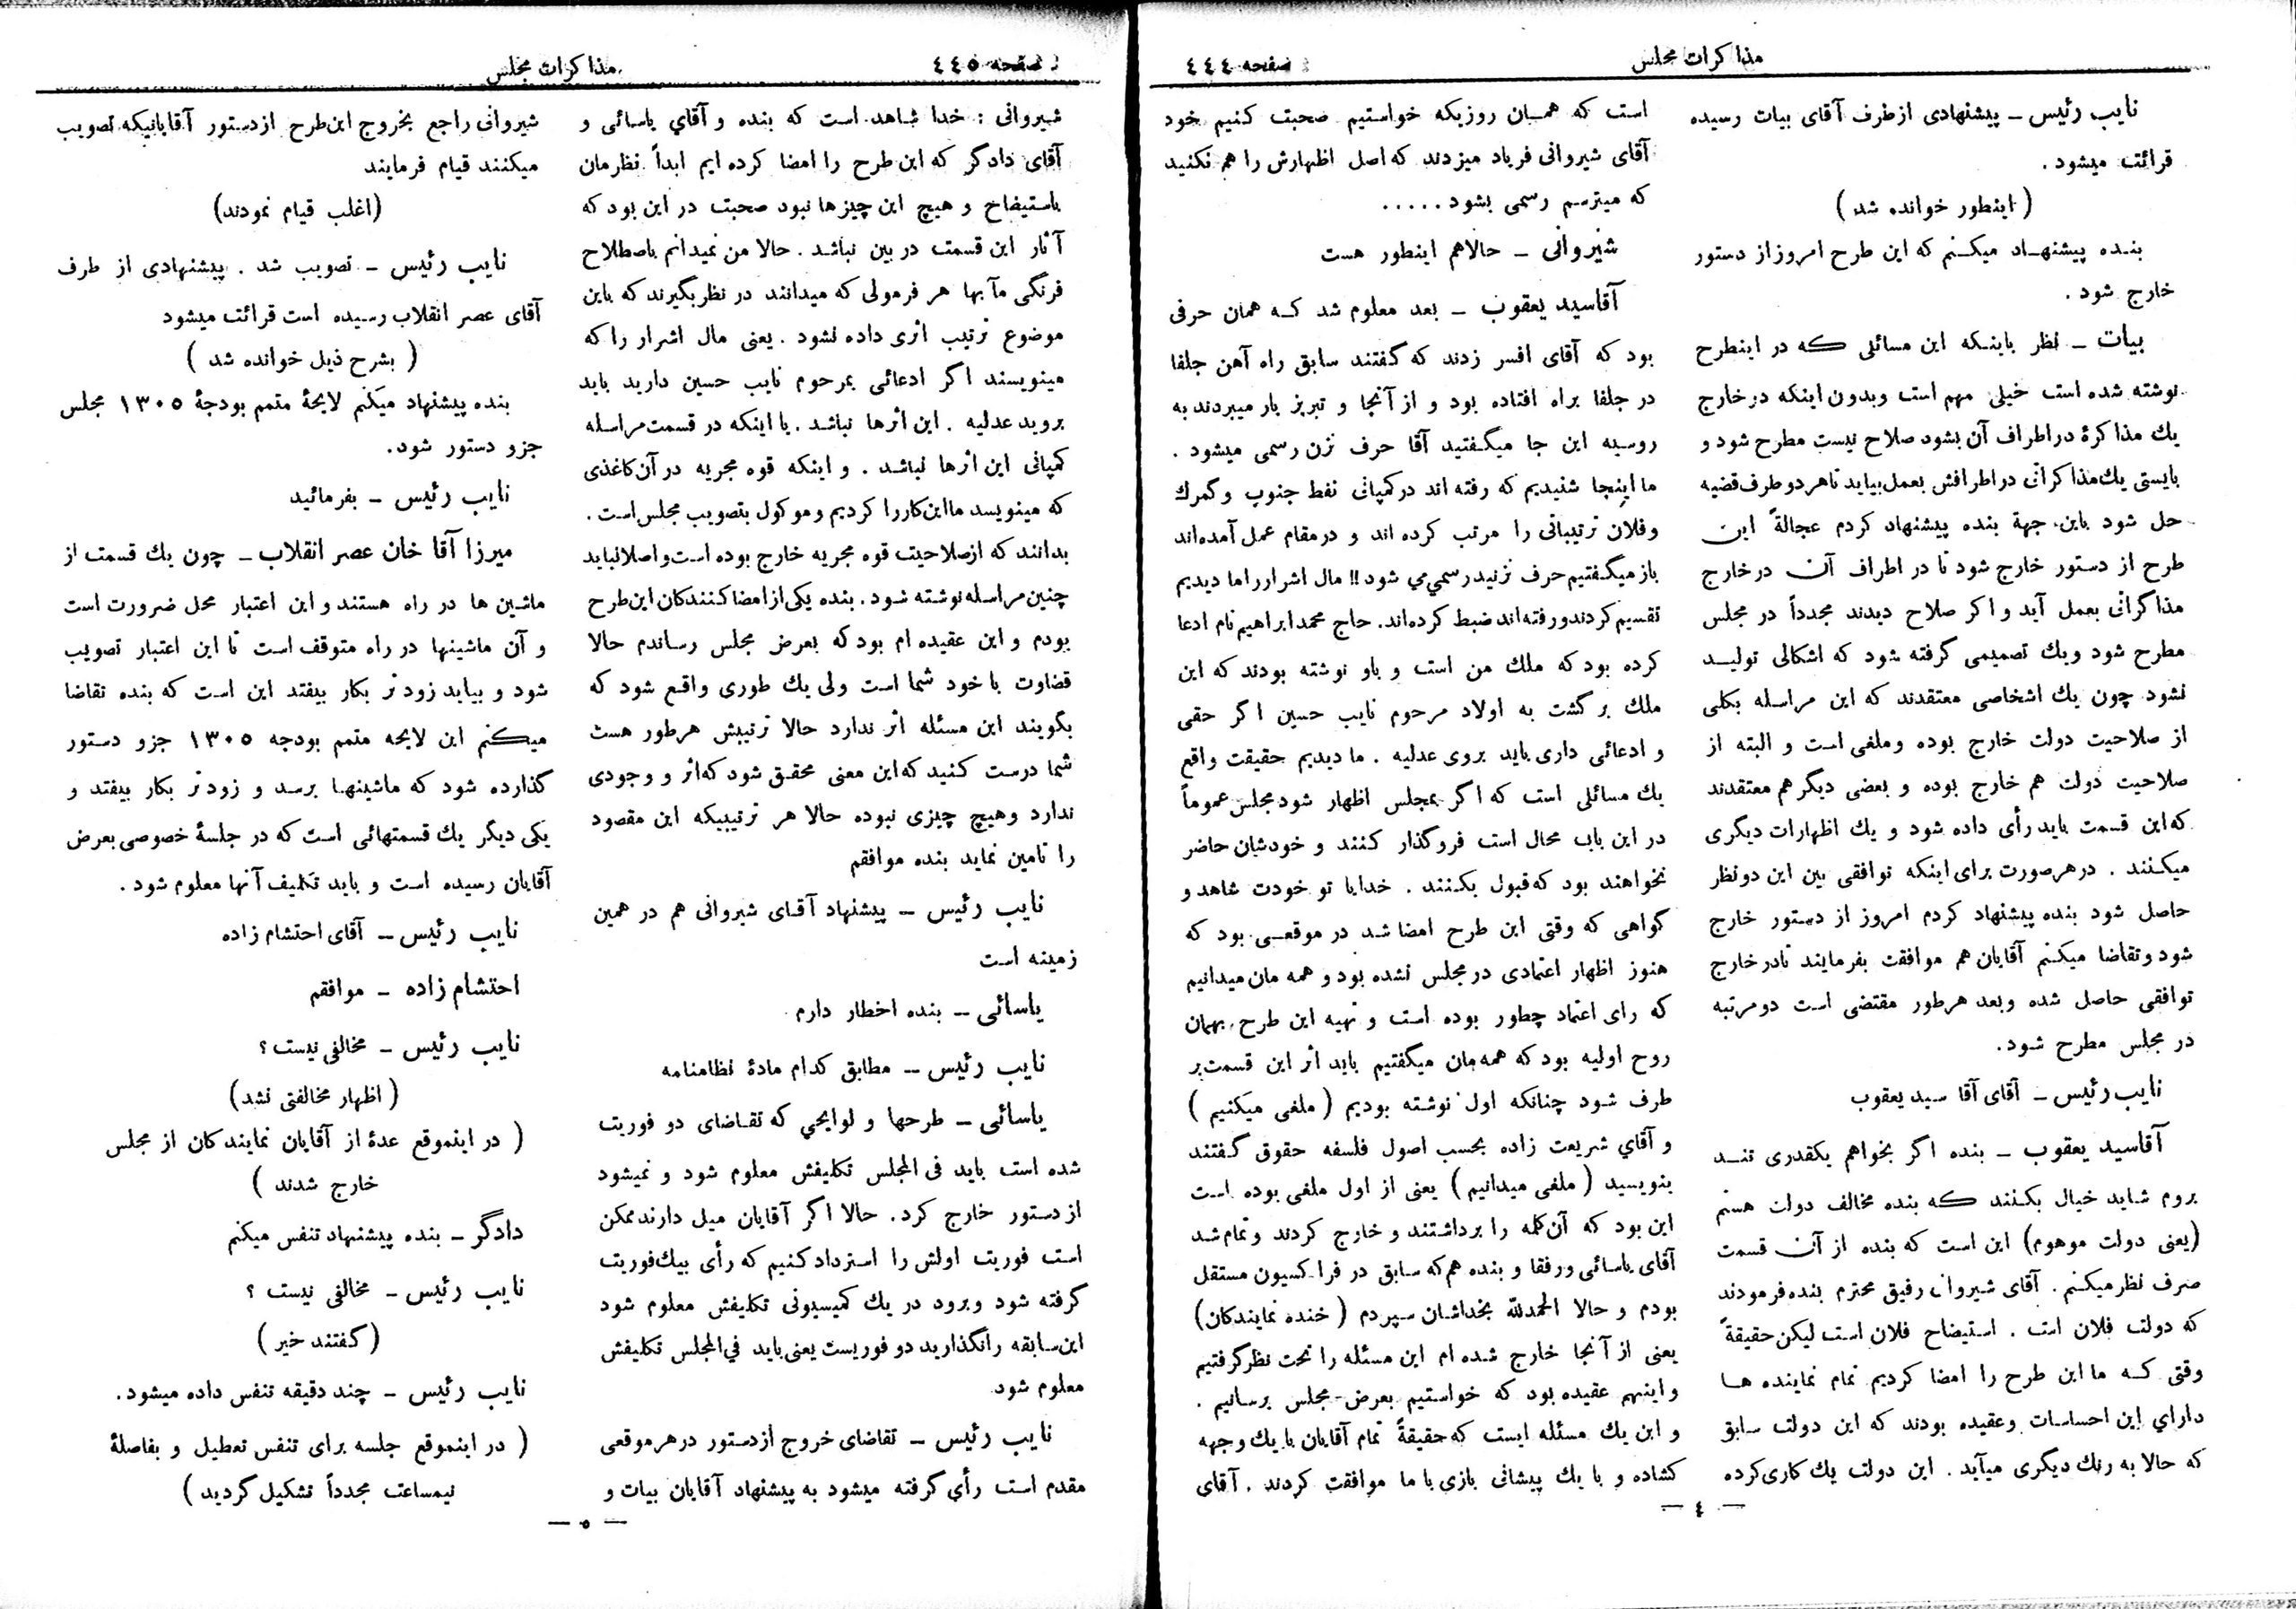 مذاکرات مجلس
صفحه ٤٤٤
نایب رئیس ـ پیشنهادی از طرف آقای بیات رسیده
قرائت میشود .
( اینطور خوانده شد )
بنده پیشنهاد میکنم که این طرح امروز از دستور
خارج شود .
بیات ـ نظر باینکه این مسائلی که در اینطرح
نوشته شده است خیلی مهم است و بدون اینکه در خارج
یك مذاکرۀ در اطراف آن بشود صلاح نیست مطرح شود و
بایستی یك مذاکراتی در اطرافش بعمل بیاید تا هر دو طرف قضیه
حل شود باین جهة بنده پیشنهاد کردم عجالةً این
طرح از دستور خارج شود تا در اطراف آن در خارج
مذاکراتی بعمل آید و اکر صلاح دیدند مجدداً در مجلس
مطرح شود ویك تصمیمی گرفته شود که اشکالی تولید
نشود چون یك اشخاصی معتقدند که این مراسله بکلی
از صلاحیت دولت خارج بوده وملغی است و البته از
صلاحیت دولت هم خارج بوده و بعضی دیگر هم معتقدند
که این قسمت باید رأی داده شود و یك اظهارات دیگری
میکنند . در هر صورت برای اینکه توافقی بین این دو نظر
حاصل شود بنده پیشنهاد کردم امروز از دستور خارج
شود و تقاضا میکنم آقایان هم موافقت بفرمایند تا در خارج
توافقی حاصل شده وبعد هر طور مقتضی است دو مرتبه
در مجلس مطرح شود.
نایب رئیس ـ آقای آقا سید یعقوب
آقاسید یعقوب ـ بنده اگر بخواهم یکقدری تند
بروم شاید خیال بکنند که بنده مخالف دولت هستم
(یعنی دولت موهوم) این است که بنده از آن قسمت
صرف نظر میکنم . آقای شیروانی رفیق محترم بنده فرمودند
که دولت فلان است . استیضاح فلان است لیکن حقیقةً
وقتی که ما این طرح را امضا کردیم تمام نماینده ها
داراي این احساسات وعقیده بودند که این دولت سابق
که حالا به رنك دیگری میآید . این دولت یك کاری کرده
است که همان روزیکه خواستیم صحبت کنیم خود
آقای شیروانی فریاد میزدند که اصل اظهارش را هم نکنید
که میترسم رسمی بشود .....
شیروانی ـ حالاهم اینطور هست
آقاسید یعقوب ـ بعد معلوم شد که همان حرفی
بود که آقای افسر زدند که گفتند سابق راه آهن جلفا
در جلفا براه افتاده بود و از آنجا و تبریز بار میبردند به
روسیه این جا میگفتید آقا حرف نزن رسمی میشود .
ما اینجا شنیدیم که رفته اند در کمپانی نفط جنوب و گمرك
وفلان ترتیباتی را مرتب کرده اند و در مقام عمل آمده‌اند
باز میگفتیم حرف نزنید رسمي مي شود !! مال اشرار را ما دیدیم
تقسیم کردند و رفته‌اند ضبط کرده‌اند. حاج محمد ابراهیم نام ادعا
کرده بود که ملك من است و باو نوشته بودند که این
ملك برگشت به اولاد مرحوم نایب حسین اگر حقی
و ادعائی داری باید بروی عدلیه . ما دیدیم حقیقت واقع
یك مسائلی است که اگر بمجلس اظهار شود مجلس عموماً
در این باب محال است فروگذار کنند و خودشان حاضر
نخواهند بود که قبول بکنند . خدایا تو خودت شاهد و
گواهی که وقتی این طرح امضا شد در موقعی بود که
هنوز اظهار اعتمادی در مجلس نشده بود و همه مان میدانیم
که رای اعتماد چطور بوده است و تهیه این طرح بهمان
روح اولیه بود که همه‌مان میگفتیم باید اثر این قسمت بر
طرف شود چنانکه اول نوشته بودیم ( ملغی میکنیم )
و آقاي شریعت زاده بحسب اصول فلسفه حقوق گفتند
بنویسید ( ملغی میدانیم ) یعنی از اول ملغی بوده است
این بود که آن کلمه را برداشتند و خارج کردند و تمام شد
آقای یاسائی و رفقا و بنده هم که سابق در فراکسیون مستقل
بودم و حالا الحمدلله بخداشان سپردم ( خنده نمایندکان)
یعنی از آنجا خارج شده ام این مسئله را تحت نظر گرفتیم
و اینهم عقیده بود که خواستیم بعرض مجلس برسانیم .
و این یك مسئله ایست که حقیقةً تمام آقایان با یك وجهه
کشاده و با یك پیشانی بازی با ما موافقت کردند . آقای
ـ ٤ ـ
صفحه ٤٤٥
مذاکرات مجلس
شیروانی : خدا شاهد است که بنده و آقاي یاسائی و
آقای دادگر که این طرح را امضا کرده ایم ابداً نظرمان
باستیضاح و هیچ این چیزها نبود صحبت در این بود که
آثار این قسمت در بین نباشد . حالا من نمیدانم باصطلاح
فرنگی مآبها هر فرمولی که میدانند در نظر بگیرند که باین
موضوع ترتیب اثری داده نشود . یعنی مال اشرار را که
مینویسند اگر ادعائی بمرحوم نایب حسین دارید باید
بروید عدلیه . این اثرها نباشد . یا اینکه در قسمت مراسله
کمپانی این اثرها نباشد . و اینکه قوه مجریه در آن کاغذی
که مینویسد ما این کار را کردیم و موکول بتصویب مجلس است .
بدانند که از صلاحیت قوه مجریه خارج بوده است و اصلا نباید
چنین مراسله نوشته شود . بنده یکی از امضا کنندکان این طرح
بودم و این عقیده ام بود که بعرض مجلس رساندم حالا
قضاوت با خود شما است ولی یك طوری واقع شود که
بگویند این مسئله اثر ندارد حالا ترتیبش هرطور هست
شما درست کنید که این معنی محقق شود که اثر و وجودی
ندارد وهیچ چیزی نبوده حالا هر ترتیبیکه این مقصود
را تامین نماید بنده موافقم
نایب رئیس ـ پیشنهاد آقای شیروانی هم در همین
زمینه است
یاسائی ـ بنده اخطار دارم
نایب رئیس ـ مطابق کدام مادۀ نظامنامه
یاسائی ـ طرحها و لوایحي که تقاضای دو فوریت
شده است باید فی المجلس تکلیفش معلوم شود و نمیشود
از دستور خارج کرد. حالا اگر آقایان میل دارند ممکن
است فوریت اولش را استرداد کنیم که رأی بیك فوریت
گرفته شود وبرود در یك کمیسیونی تکلیفش معلوم شود
این سابقه را نگذارید دو فوریست یعنی باید في المجلس تکلیفش
معلوم شود
نایب رئیس ـ تقاضای خروج از دستور در هر موقعی
مقدم است رأي گرفته میشود به پیشنهاد آقایان بیات و
شیروانی راجع بخروج این طرح از دستور آقایانیکه تصویب
میکنند قیام فرمایند
(اغلب قیام نمودند)
نایب رئیس ـ تصویب شد . پیشنهادی از طرف
آقای عصر انقلاب رسیده است قرائت میشود
( بشرح ذیل خوانده شد )
بنده پیشنهاد میکنم لایحۀ متمم بودجۀ ١٣٠٥ مجلس
جزو دستور شود.
نایب رئیس ـ بفرمائید
میرزا آقا خان عصر انقلاب ـ چون یك قسمت از
ماشین ها در راه هستند و این اعتبار محل ضرورت است
و آن ماشینها در راه متوقف است تا این اعتبار تصویب
شود و بیاید زود تر بکار بیفتد این است که بنده تقاضا
میکنم این لایحه متمم بودجه ١٣٠٥ جزو دستور
گذارده شود که ماشینها برسد و زودتر بکار بیفتد و
یکی دیگر یك قسمتهائی است که در جلسۀ خصوصی بعرض
آقایان رسیده است و باید تکلیف آنها معلوم شود .
نایب رئیس ـ آقای احتشام زاده
احتشام زاده ـ موافقم
نایب رئیس ـ مخالفی نیست ؟
( اظهار مخالفتی نشد)
( در اینموقع عدۀ از آقایان نمایندکان از مجلس
خارج شدند )
دادگر ـ بنده پیشنهاد تنفس میکنم
نایب رئیس ـ مخالفی نیست ؟
(گفتند خیر )
نایب رئیس ـ چند دقیقه تنفس داده میشود.
( در اینموقع جلسه برای تنفس تعطیل و بفاصلۀ
نیمساعت مجدداً تشکیل گردید )
ـ ٥ ـ